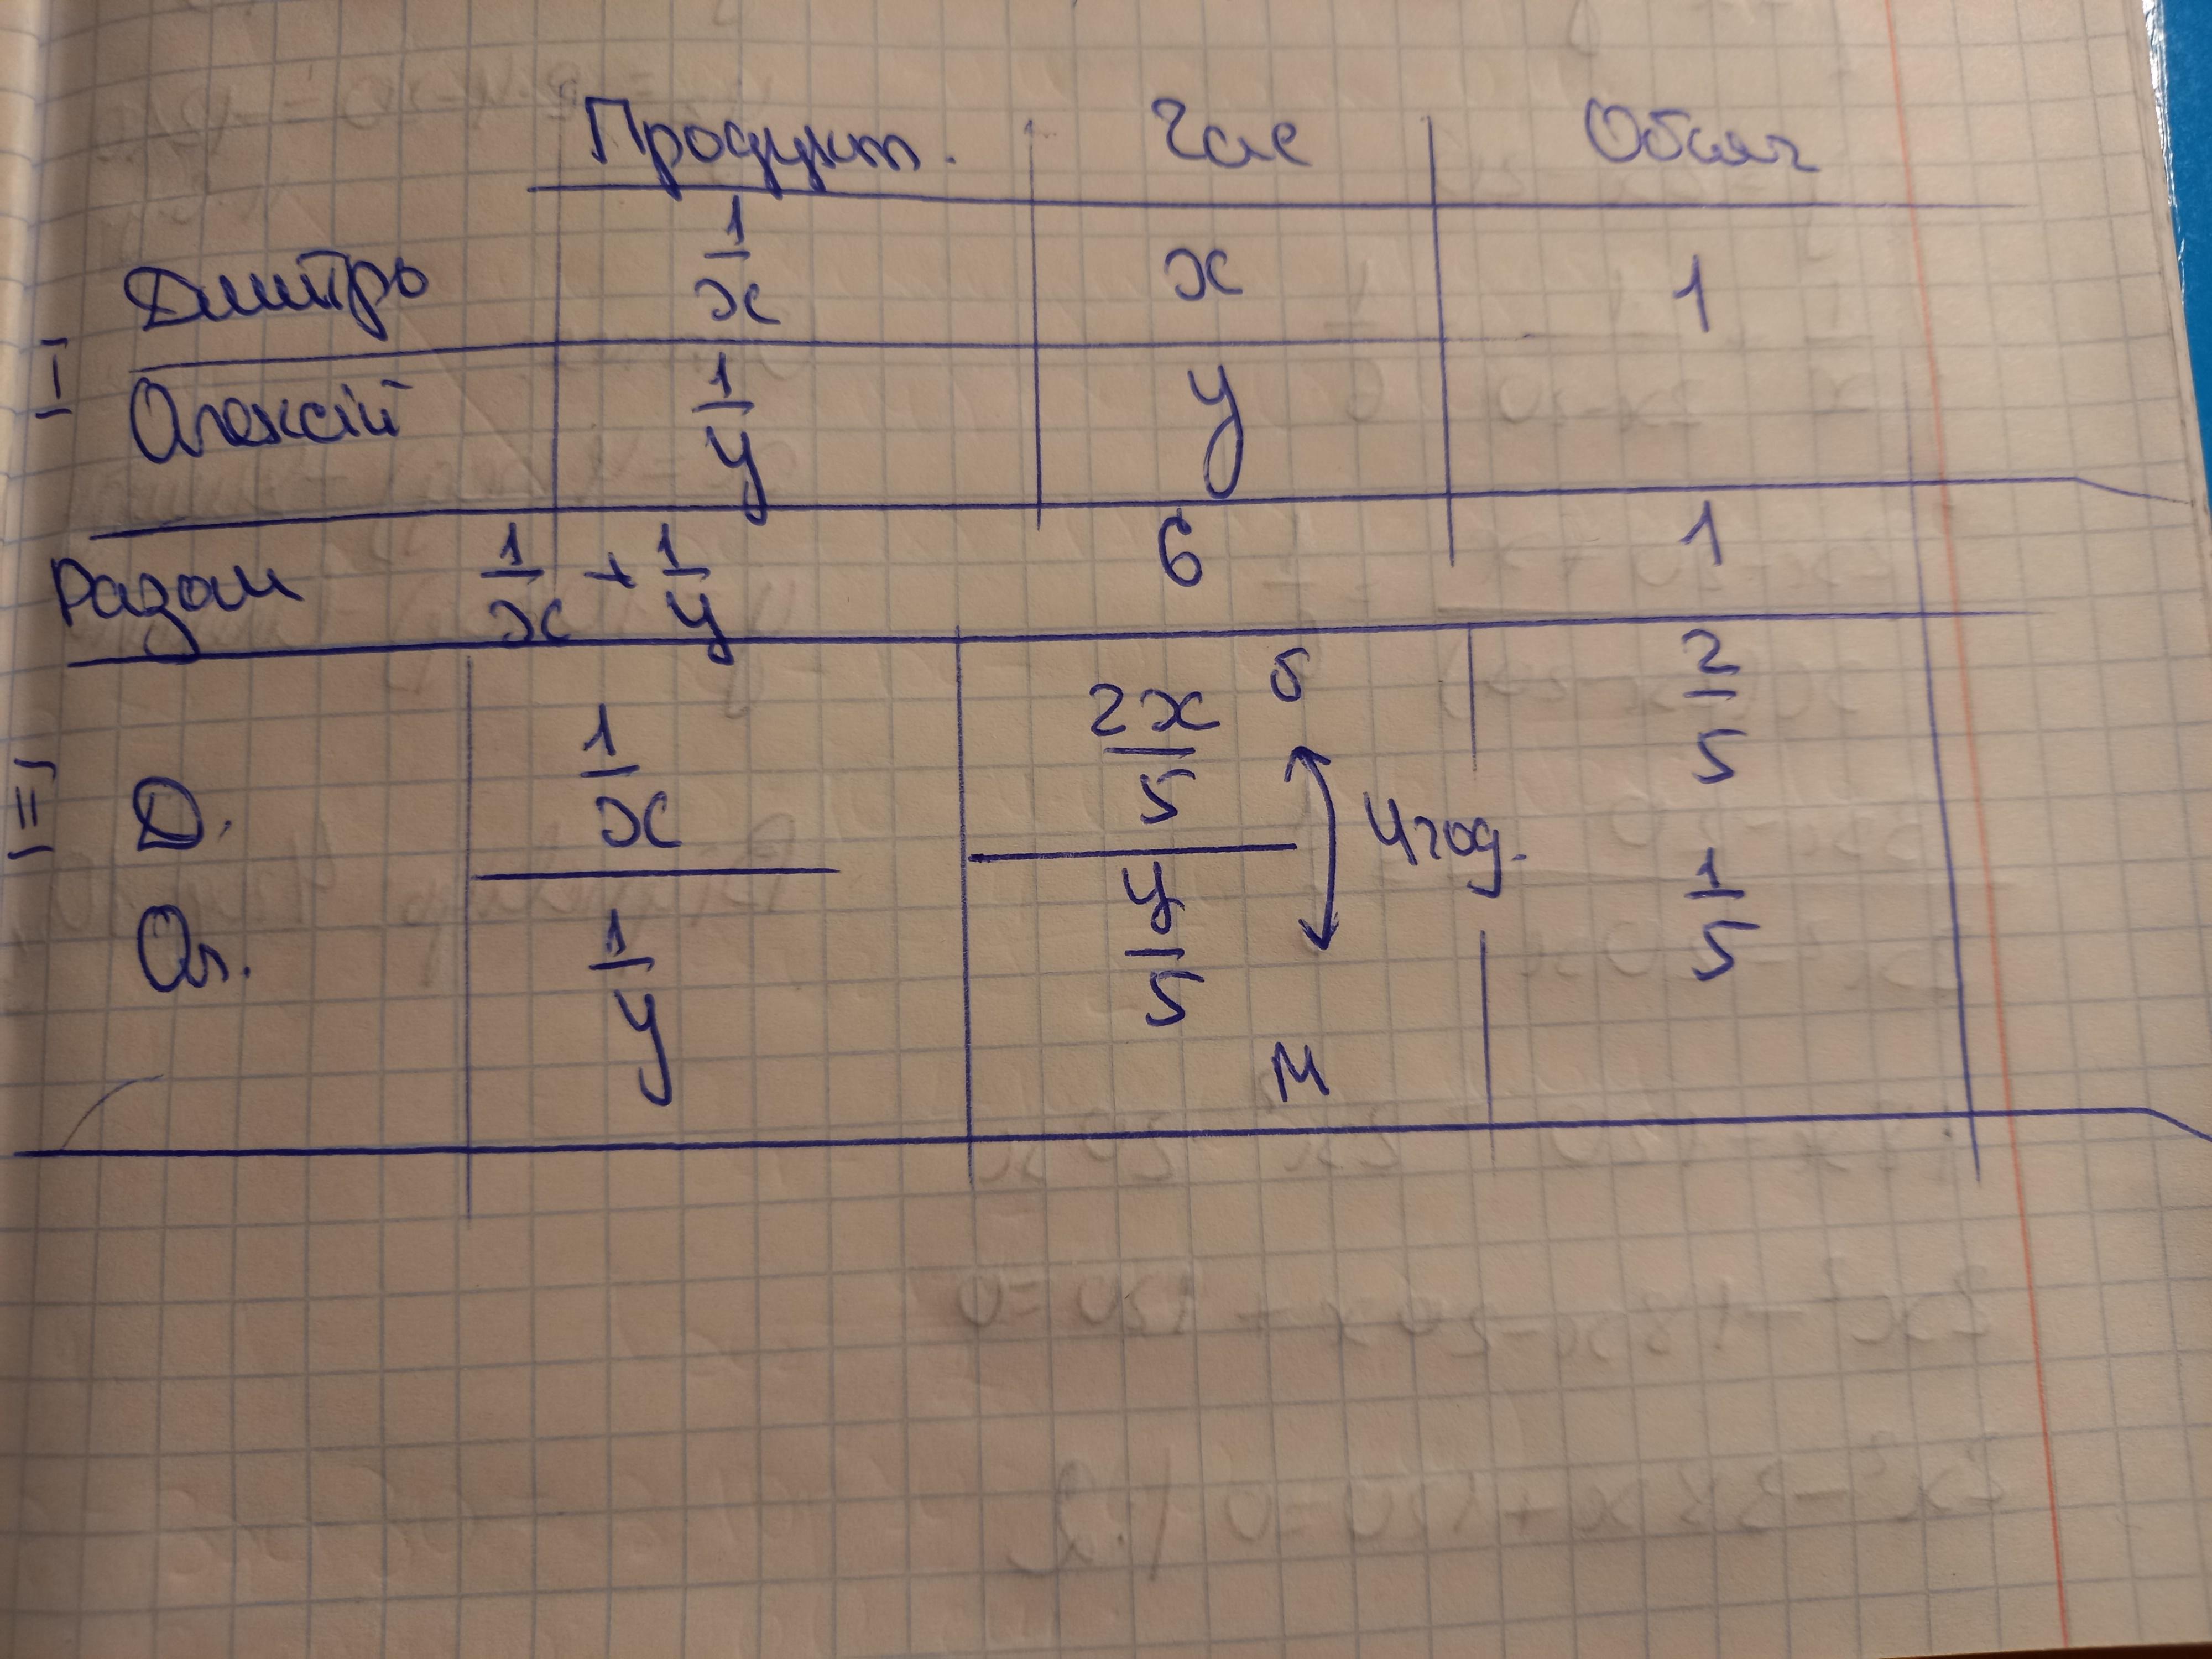 Продукт. Час Обсяг
I Дмитро 1/x x 1
Олексій 1/y y
Разом 1/x + 1/y 6 1
II Д. 1/x 2x/5 б 2/5
4 год.
Ол. 1/y y/5 м 1/5